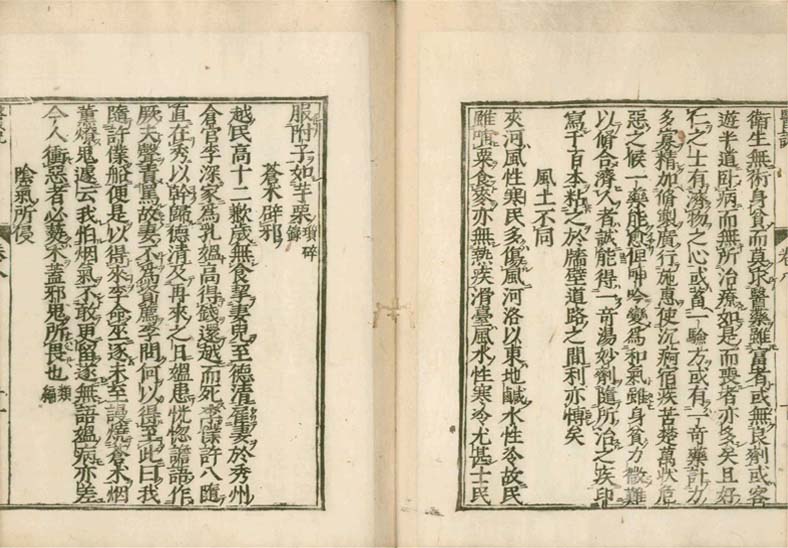 衛生無術身貧而莫求醫藥雖富者或無良劑或客
遊半道卧病而無所治療如是而喪者亦多矣且好
仁之士有濟物之心或蓄一驗方或有一奇藥計力
多寡精加修製廣行施惠使沉痾宿疾苦楚萬狀危
惡之候一藥能愈俾呻吟變爲和氣雖身貧力微難
以脩合濟人者誠能得一奇湯妙劑隨所治之疾印
寫千百本粘之於牖壁道路之間利亦愽矣
風土不同
夾河風性寒民多傷風河洛以東地鹹水性冷故民
雖哺粟食麥亦無熱疾滑臺風水性寒冷尤甚士民
服附子如芋栗瑣碎錄
蒼朮辟邪
越民高十二歉歲無食挈妻兒至德清雇妻於秀州
倉官李深家爲乳媪高得錢還越而死李僕許八隨
直在秀以幹歸德清及再來之日媪患恍惚譫語作
厥夫聲責罵故妻不爲資薦李問何以得至此曰我
隨許僕船便是以得來李命巫逐未至謾燒蒼朮烟
薰燎鬼遽云我怕烟氣不敢更留遂無語媪病亦差
今人衝惡者必爇朮蓋邪鬼所畏也類編
陰氣所侵